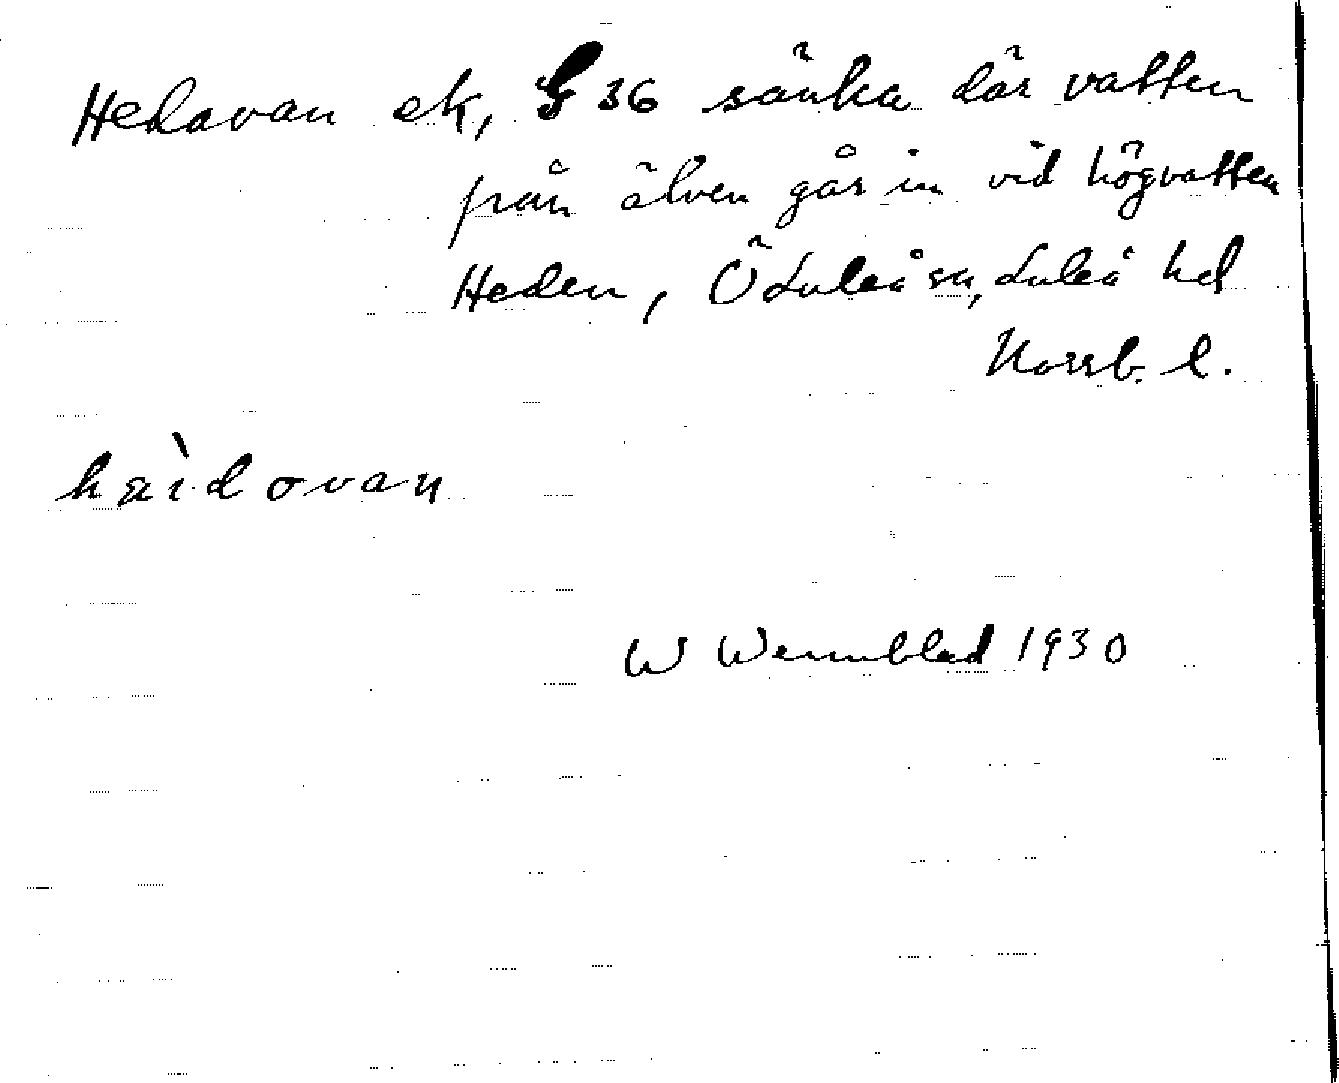 Hedavan ek, G 36 sänka där vatten
från älven går in vid högvatten
Heden, Ö Luleå sn, Luleå hd
Norrb. l.
hæ̀idovan
W Wennblad 1930